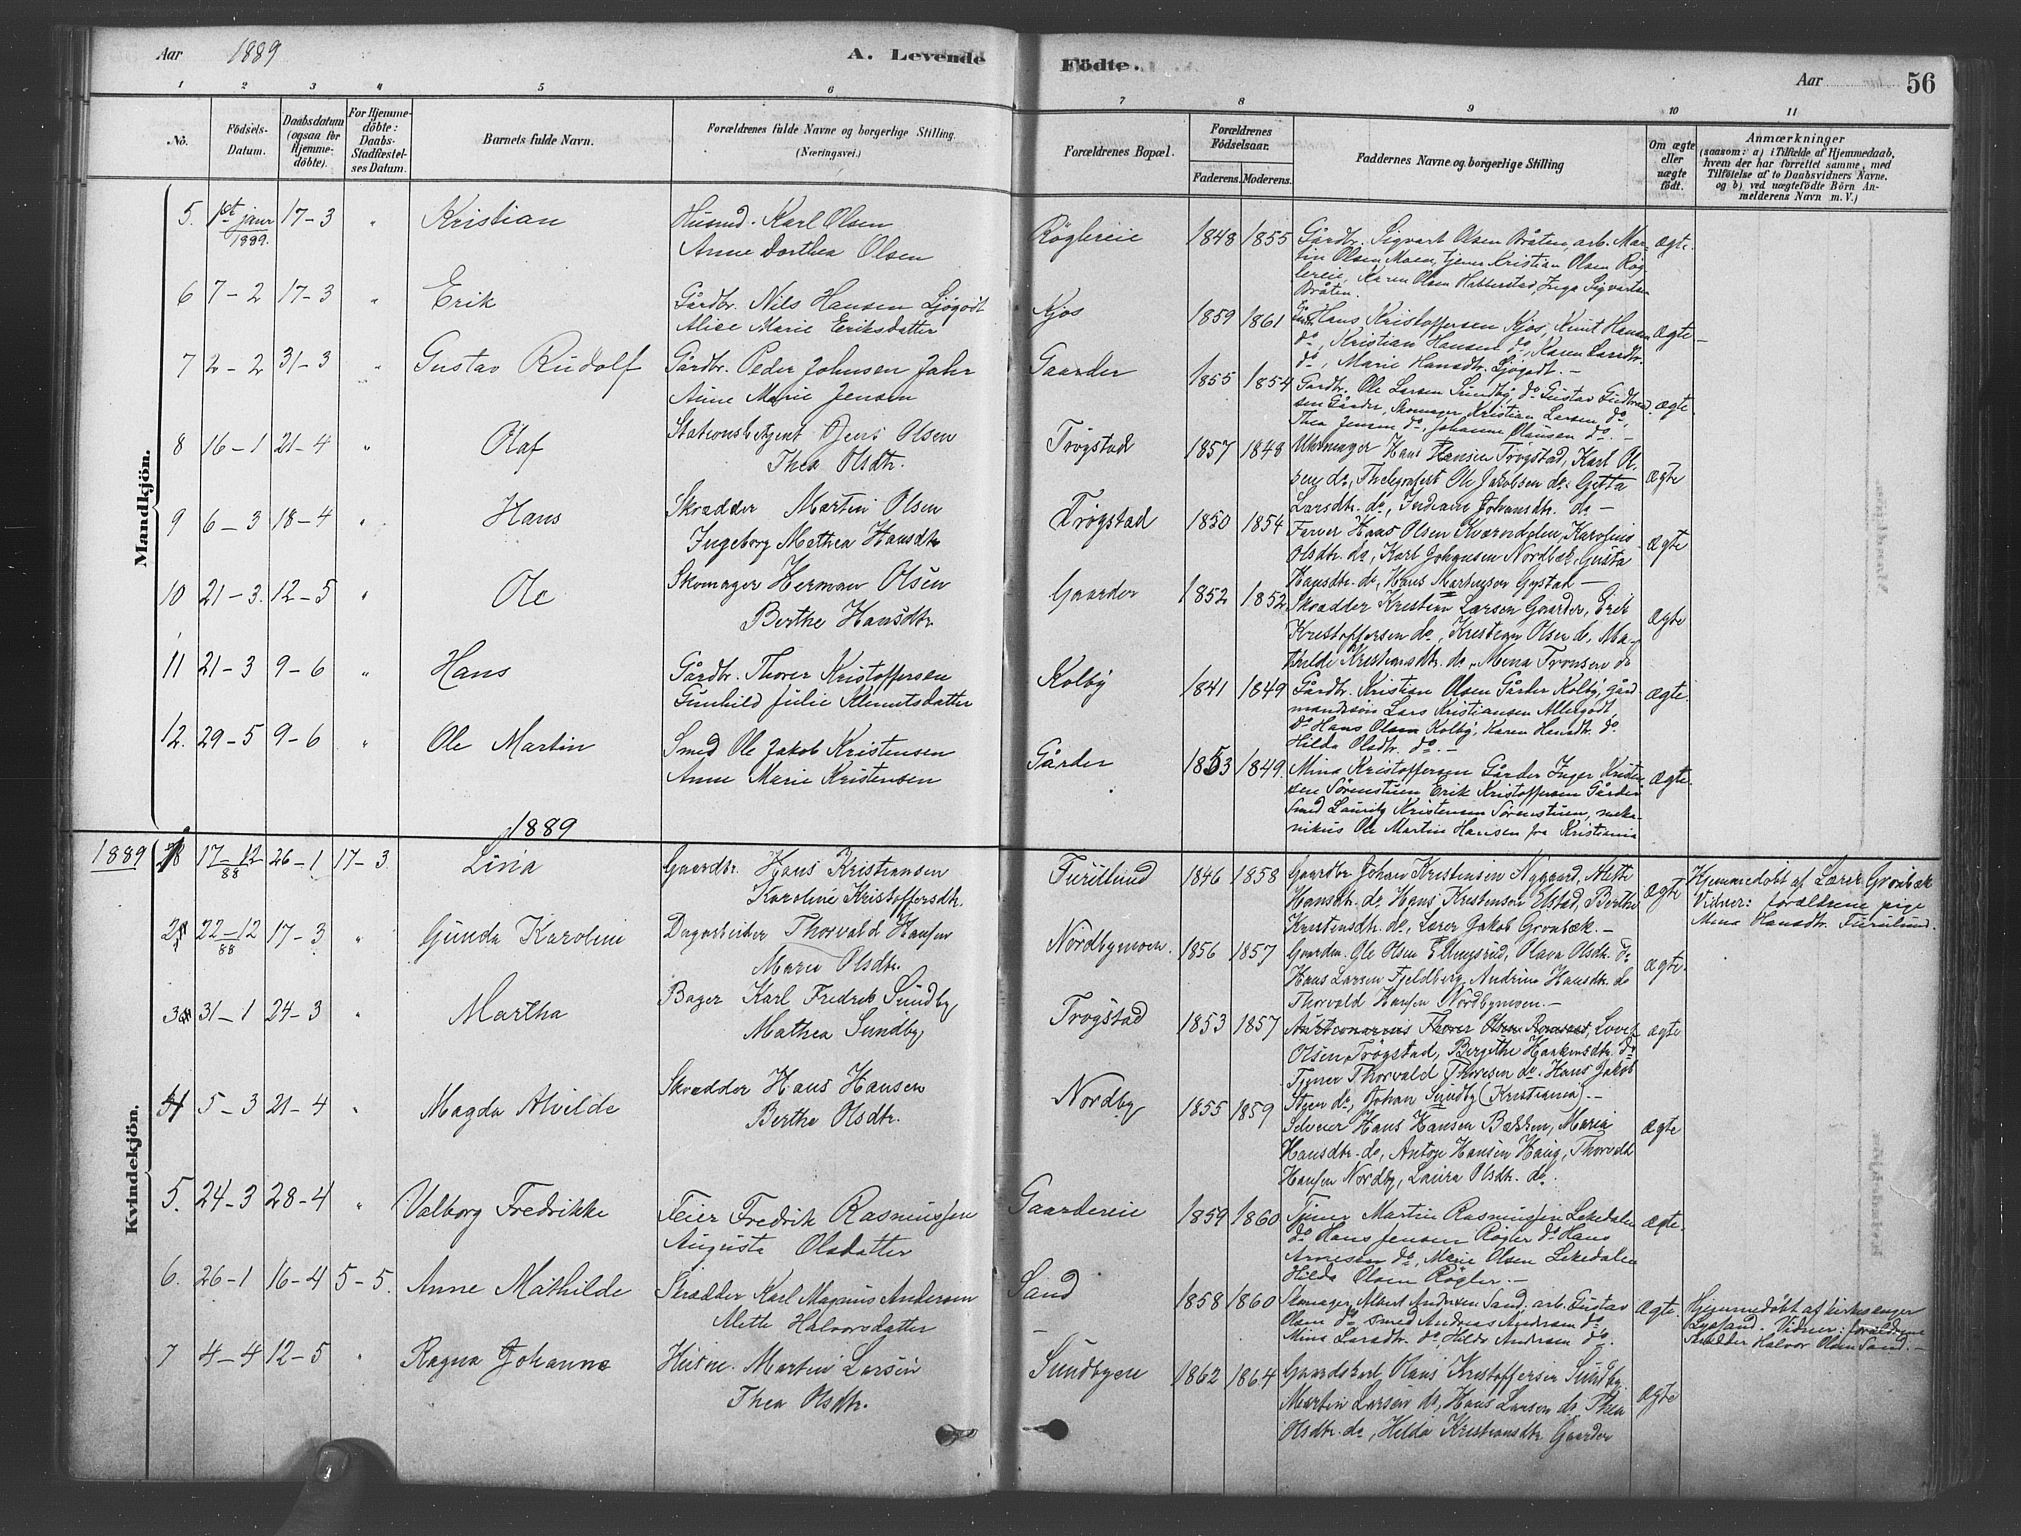 Aar 1889
A. Levende
Födte.
Aar 56
1 2 3 4 5 6 7 8 9 10 11
No.
Födsels-
Datum.
Daabsdatum
(ogsaa for
Hjemme-
döbte).
For Hjemme-
döbte:
Daabs-
Stadfæstel-
ses Datum.
Barnets fulde Navn.
Forældrenes fulde Navne og borgerlige Stilling.
(Næringsvei.)
Forældrenes Bopæl.
Forældrenes
Födselsaar.
Faderens. Moderens.
Faddernes Navne og borgerlige Stilling
Om ægte
eller
uægte
födt.
Anmærkninger
(saasom: a) i Tilfælde af Hjemmedaab,
hvem der har forrettet samme, med
Tilföielse af to Daabsvidners Navne,
og b) ved uægtefödte Börn An-
melderens Navn m. V.)
Mandkjön.
5. 1st janr 1889. 17-3 " Kristian
Husmd. Karl Olsen
Anne Dorthea Olsen
Röglereie 1848 1855
Gårdbr. Sigvart Olsen Bråten, arb. Mar-
tin Olsen Moen, tjener Kristian Olsen Rög-
lereie, Karen Olsen Habberstad, Inga Sigvartsen
Bråten.
ægte.
6 7-2 17-3 " Erik
Gårdbr. Nils Hansen Ljøgodt
Alice Marie Eriksdatter
Kjos 1859 1861
Hans Kristoffersen Kjos, Knut Hansen
do, Kristian Hansen do, Karen Larsdtr.
do, Marie Hansdtr. Ljøgodt. -
ægte
7 2-2 31-3 " Gustav Rudolf
Gårdbr. Peder Johnsen Jahr
Anne Marie Jensen
Gaarder 1855 1854
Gårdbr. Ole Larsen Sundby, do Gustav Gudbrand-
sen Gårder, Skomager Kristian Larsen do,
Thea Jensen do, Johanne Olausen do. -
ægte.
8 16-1 21-4 " Olaf
Stationsbetjent Jens Olsen
Thea Olsdtr.
Trögstad 1857 1848
Uhrmager Hans Hansen Trögstad, Karl Ol-
sen do, Thelegrafest Ole Jakobsen do, Getta
Larsdtr. do, Indiane Johansdtr. do -
ægte
9 6-3 18-4 " Hans
Skrædder Martin Olsen
Ingeborg Mathea Hansdtr
Trögstad 1850 1854
Farver Hans Olsen Kværndalen, Karoline
Olsdtr. do, Karl Johansen Nordbæk, Gusta
Hansdtr. do, Hans Martinsen Gystad -
ægte
10 21-3. 12-5 " Ole
Skomager Herman Olsen
Berthe Hansdtr.
Gaarder 1852 1852
Skrædder Kristian Larsen Gaarder, Erik
Kristoffersen do, Kristian Olsen do, Ma-
thilde Kristiansdtr. do, Mina Tronsen do
ægte
11 21-3 9-6 " Hans
Gårdbr. Thorer Kristoffersen
Gunhild Julie Klemetsdatter
Kolby 1841 1849
Gårdbr. Kristian Olsen Gårder Kolby, gård-
mandssön Lars Kristiansen Allergodt
do Hans Olsen Kolby, Karen Hansdtr. do
Hilda Olsdtr. do. -
ægte.
12. 29-5 9-6 " Ole Martin
Smed Ole Jakob Kristensen
Anne Marie Kristensen
Gårder 1853 1849.
Mina Kristoffersen Gårder Inger Kristen-
sen Sörenstuen Erik Kristoffersen Gårder
Smed Lauritz Kristensen Sörenstuen, meka-
nikus Ole Martin Hansen fra Kristiania
ægte.
1889
Kvindekjön.
1889 1 17-12 88 26-1 17-3. Lina
Gaardbr. Hans Kristiansen
Karoline Kristoffersdtr.
Furulund 1846 1858
Gaardbr Johan Kristensen Nygaard, Mette
Hansdtr. do, Hans Kristensen Elstad, Berthe
Kristensdtr. do, Lærer Jakob Grønbæk. -
ægte
Hjemmedøbt af Lærer Grønbæk
Vidner: forældrene pige
Mina Hansdtr. Furulund.
2 22-12 88 17-3 " Gunda Karoline
Dagarbeider Thorvald Hansen
Marie Olsdtr.
Nordbymoen. 1856 1857
Gaardm. Ole Olsen Ellingsrud, Olava Olsdtr. do
Hans Larsen Fjeldberg, Andrine Hansdtr. do
Thorvald Hansen Nordbymoen. -
ægte.
3 31-1 24-3 " Martha
Bager Karl Fredrik Sundby
Mathea Sundby
Trögstad 1853 1857
Auktionarius Thorer Olsen Romsaas, Lovise
Olsen Trögstad, Bergithe Haakensdtr. do
Tjener Thorvald Thoresen do. Hans Jakob
Steen do, Johan Sundby (Kristiania). -
ægte
4 5-3 21-4 " Magda Alvilde
Skrædder Hans Hansen
Berthe Olsdtr.
Nordby 1855 1859
Selveier Hans Hansen Bækken, Maria
Hansdtr. do, Anton Hansen Haug, Thorvald
Hansen Nordby, Laura Olsdtr. do.
ægte
5. 24-3 28-4 " Valborg Fredrikke
Feier Fredrik Rasmussen
Augusta Olsdatter
Gaardereie 1859 1860
Tjener Martin Rasmussen Lekedalen
do Hans Jensen Rögler do Hans
Arnesen do, Marie Olsen Lekedalen
Hilda Olsen Rögler. -
ægte.
6. 26-1 16-4 5-5. Anne Mathilde
Skrædder Karl Magnus Andersen
Alette Halvorsdatter
Sand 1858 1860
Skomager Albert Andersen Sand, arb. Gustav
Olsen do smed Andreas Andersen do
Mina Larsdtr. do, Hilda Andersen do.
ægte.
Hjemmedøbt af kirkesanger
Lysesand. Vidner: forældrene
Skrædder Halvor Olsen Sand. -
7 4-4 12-5 " Ragna Johanne
Husm. Martin Larsen
Thea Olsdtr.
Sundbyeie 1862 1864
Gaardskarl Olaus Kristoffersen Sundby,
Martin Larsen do, Hans Larsen do Thea
Olsdtr. do, Hilda Kristiansdtr Gaarder
ægte